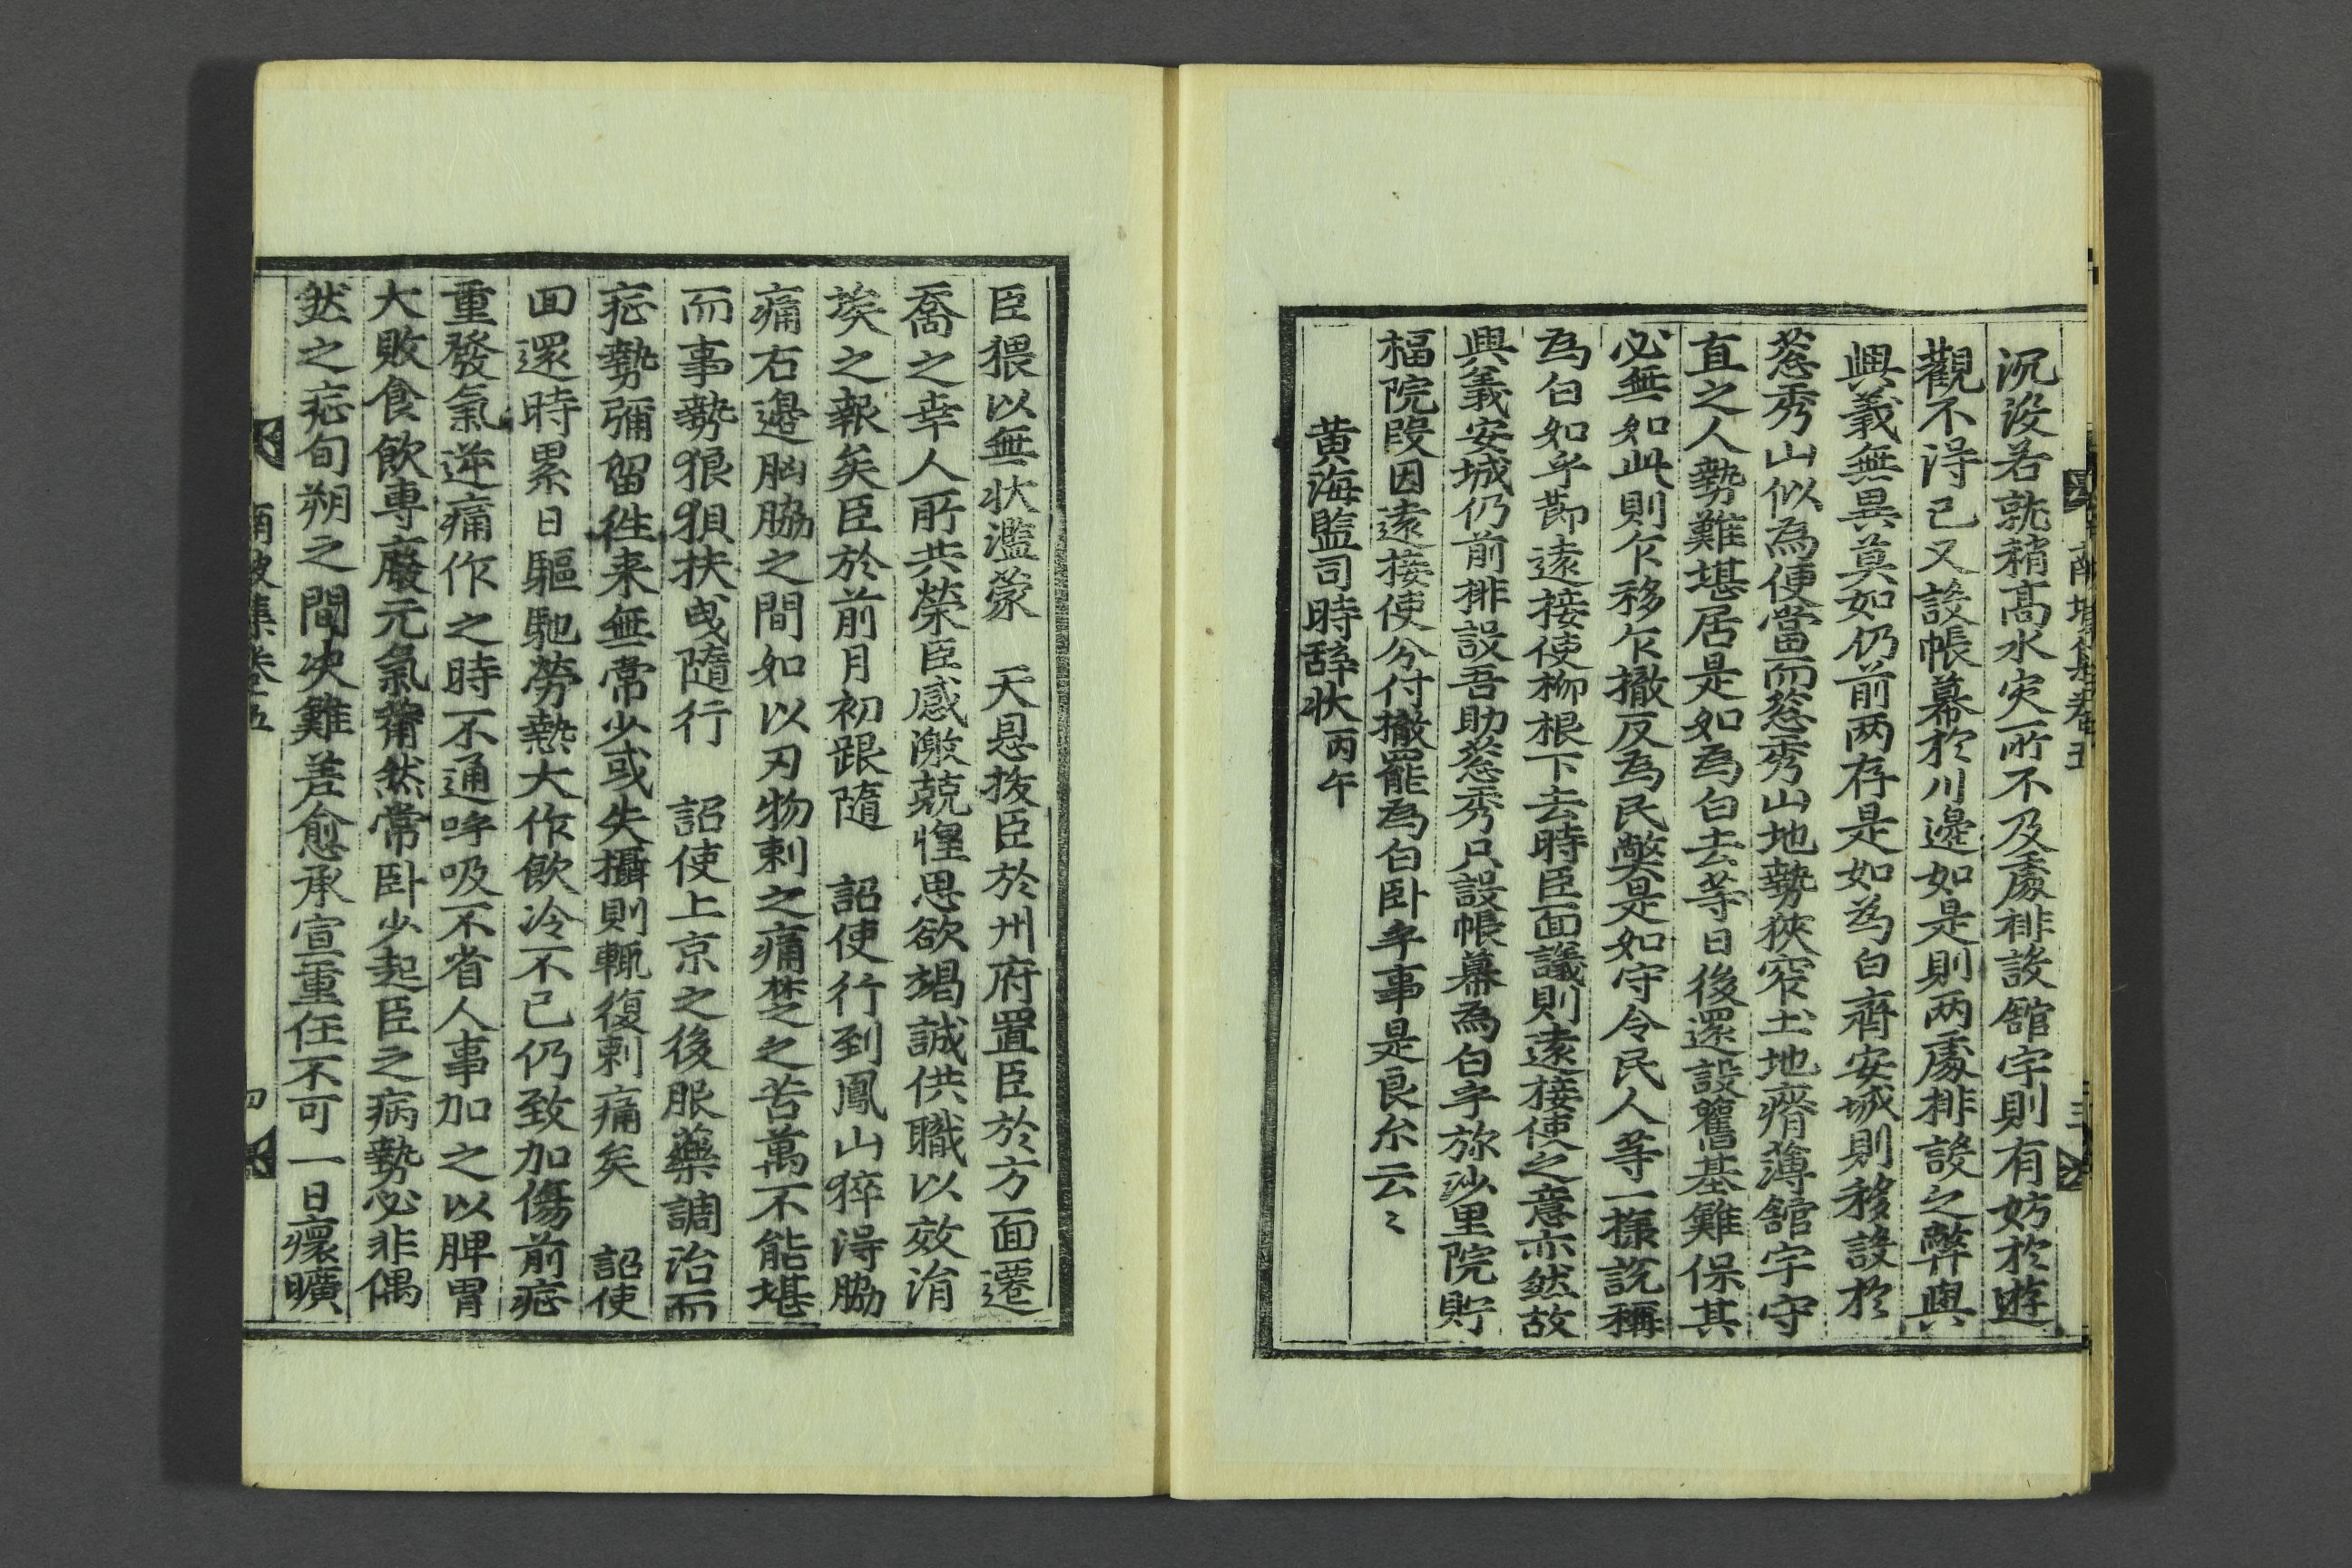 沉没若就稍高水灾所不及處排設舘宇則有妨於遊
觀不淂已又設帳幕於川邊如是則两處排設之弊與
興義無異莫如仍前两存是如為白齊安城則移設於
葱秀山似為便當而葱秀山地勢狹窄土地瘠薄舘宇守
直之人勢難堪居是如為白去等日後還設舊基難保其
必無如此則乍移乍撤反為民弊是如守令民人等一樣說稱
為白如乎節遠接使柳根下去時臣面議則遠接使之意亦然故
興義安城仍前排設吾助葱秀只設帳幕為白乎旀沙里院貯
福院段因遠接使分付撤罷為白卧乎事是良尒云〻
黄海監司時辞状丙午
臣猥以無状濫蒙　天恩抜臣於州府置臣於方面遷
喬之幸人所共榮臣感激兢惶思欲竭誠供職以效涓
埃之報矣臣於前月初跟隨　詔使行到鳳山猝淂脇
痛右邉胸脇之間如以刃物刺之痛楚之苦萬不能堪
而事勢狼狽扶曵隨行　詔使上京之後服藥調治而
症勢彌留徃来無常少或失攝則輒復刺痛矣　詔使
囬還時累日驅馳勞熱大作飲冷不已仍致加傷前症
重發氣逆痛作之時不通呼吸不省人事加之以脾胃
大敗食飲専廢元氣薾然常卧少起臣之病勢必非偶
然之症旬朔之間决難差愈承宣重任不可一日瘝曠
南坡集卷五
四